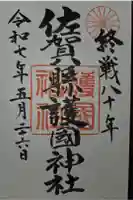 終戦八十年
佐賀縣護國神社
令和七年五月二十六日